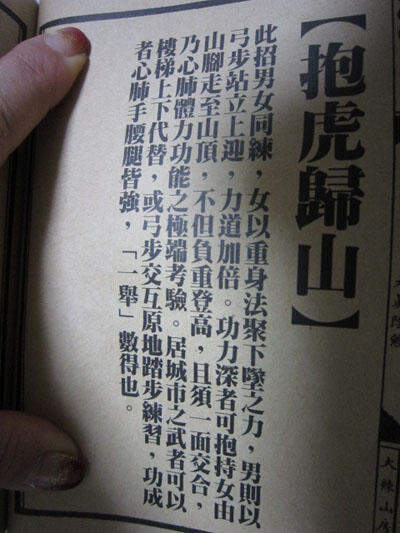 【抱虎歸山】
此招男女同練，女以重身法聚下墜之力，男則以
弓步站立上迎，力道加倍。功力深者可抱持女由
山腳走至山頂，不但負重登高，且須一面交合，
乃心肺體力功能之極端考驗。居城市之武者可以
樓梯上下代替，或弓步交互原地踏步練習，功成
者心肺手腰腿皆強，「一舉」數得也。
大辣山房